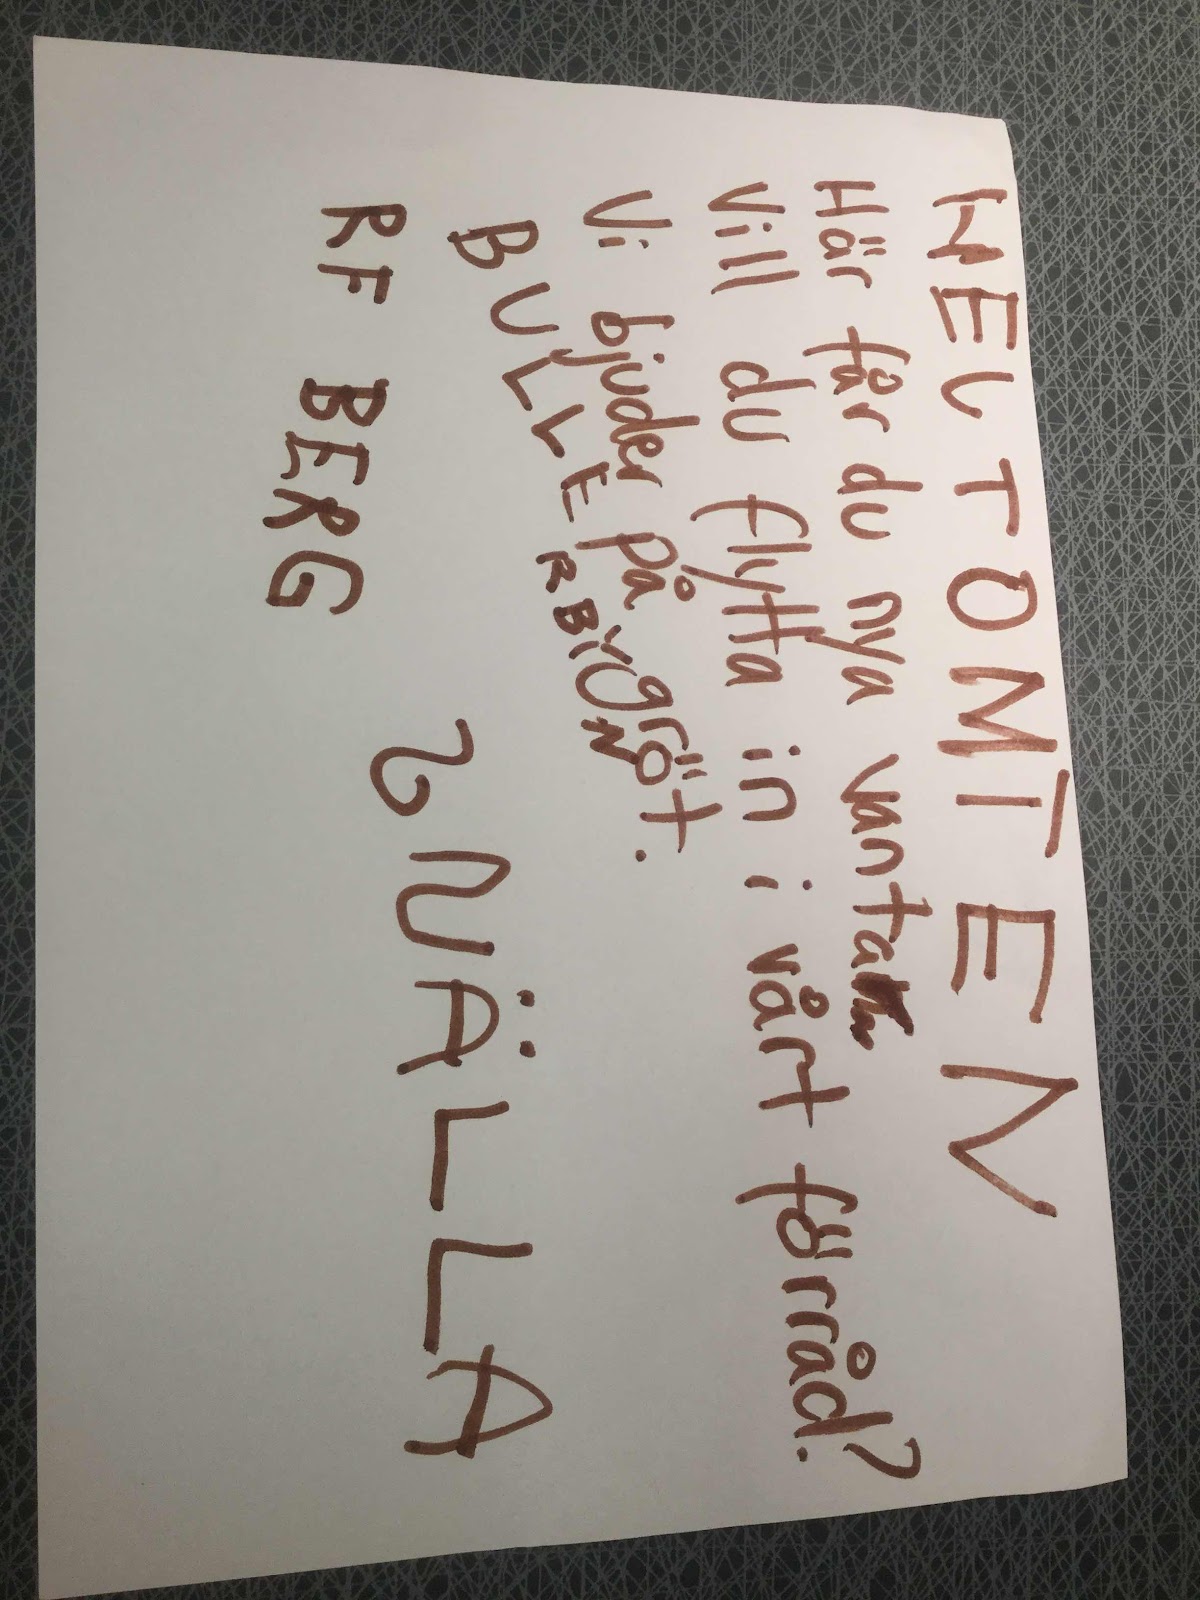 HEJ TOMTEN
Här får du nya vantar
Vill du flytta in i vårt förråd?
Vi bjuder på gröt.
BULLERBYN
SNÄLLA
RF BERG